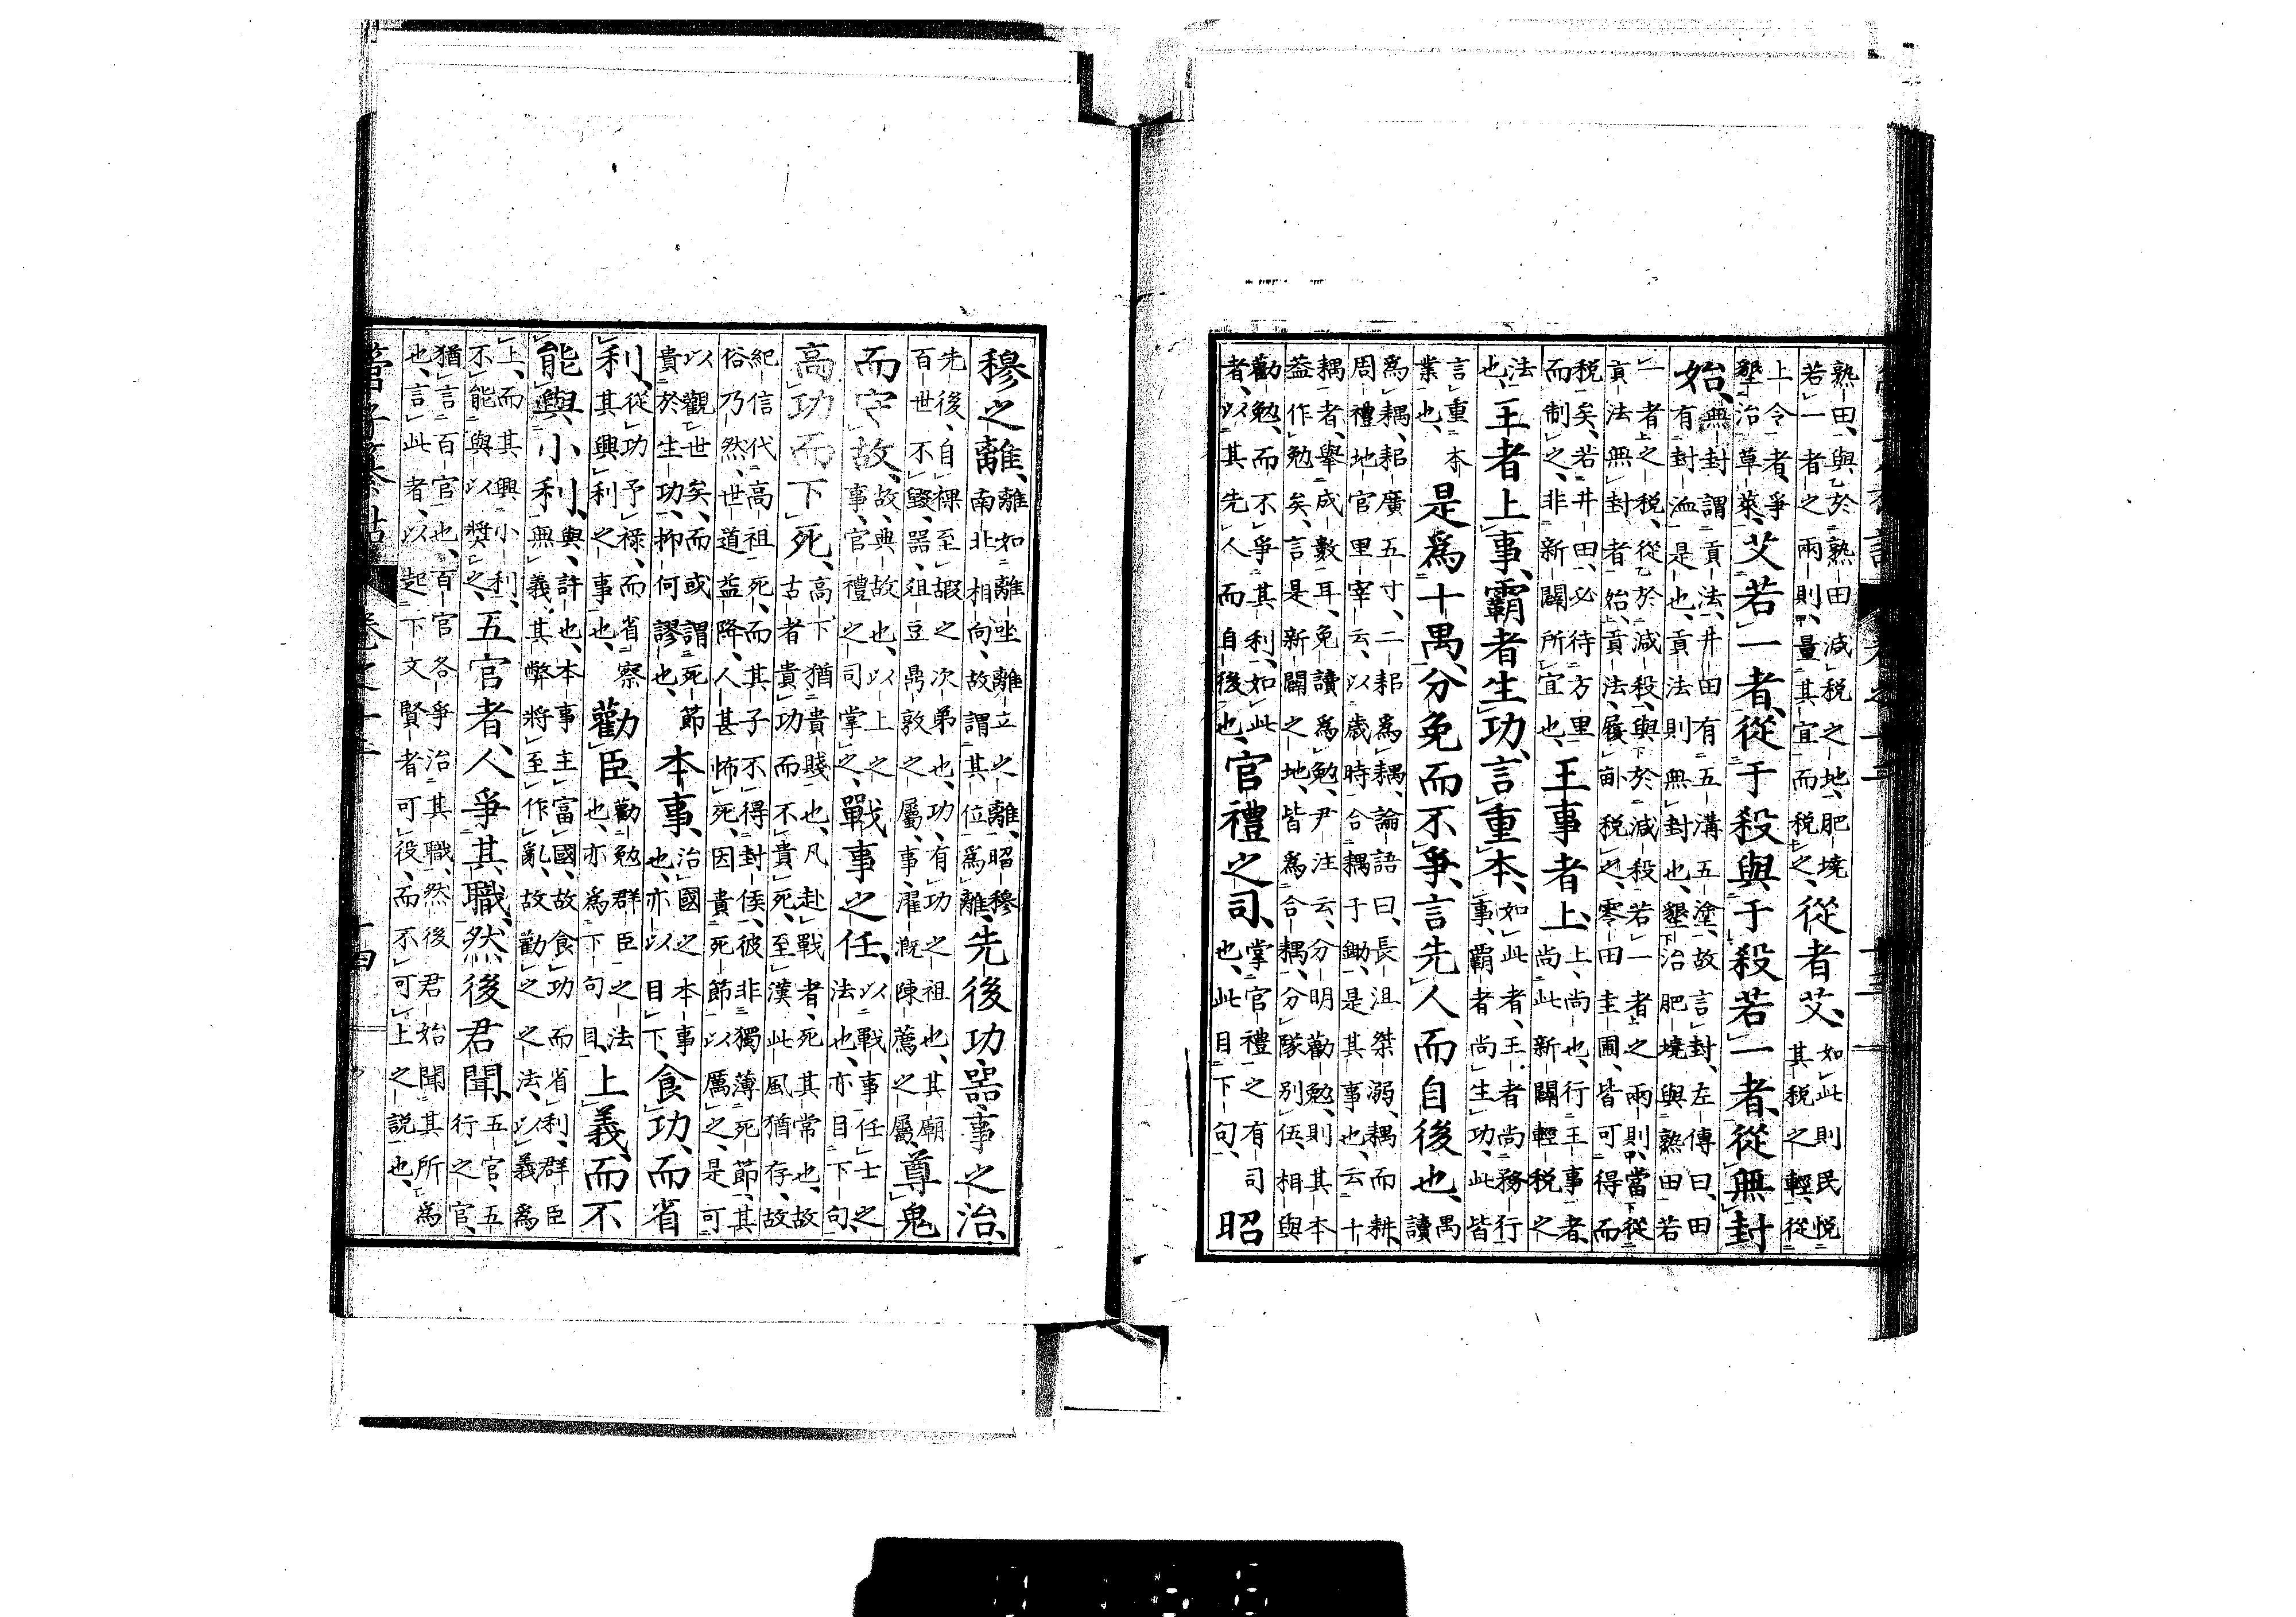 熟田、與於熟田減税之地、肥境
若一者之兩則、量其宜而税之、從者艾、如此則民悦
其税之輕、從
上令者、爭
墾治草萊、艾若一者、從于殺與于殺若一者、從無封
始、無封謂貢法、井田有五溝五塗、故言封、左傳曰、田
有封洫、是也、貢法則無封也、墾治肥境、與熟田若
一者之税、從於減殺、與於減殺若一者之兩則、當從
貢法無封者始、貢法、履畝税之、零田圭圃、皆可得而
税矣、若井田、必待方里
而制之、非新闢所宜也、王事者上、上尚也、行王事者、
尚此新闢輕税之
法
也、王者上事、霸者生功、言重本、如此者、王者尚務行
事、霸者尚生功、此皆
言重本
業也、是爲十禺、分免而不爭、言先人而自後也、禺
讀
爲耦、耜廣五寸、二耜爲耦、論語曰、長沮桀溺、耦而耕、
周禮地官里宰云、以歲時合耦于鋤、是其事也、云十
耦者、舉成數耳、免讀爲勉、尹注云、分明勸勉、則其本
蓋作勉矣、言是新闢之地、皆爲合耦、分隊別伍、相與
勸勉、而不爭其利、如此
者、以其先人而自後也、官禮之司、掌官禮之有司
也、此目下句、昭
穆之離、離如離坐離立之離、昭穆
南北相向、故謂其位爲離、先後功器事之治、
先後、自祼至嘏之次弟也、功、有功之祖也、其廟
百世不毀、器、俎豆鼎敦之屬、事、濯漑陳薦之屬、尊鬼
而守故、故、典故也、以上之
事、官禮之司掌之、戰事之任、以戰事任士之
法也、亦目下句、
高功而下死、高下猶貴賤也、凡赴戰者、死其常也、故
古者貴功而不貴死、至漢此風猶存、故
紀信代高祖死、而其子不得封侯、彼非獨薄死節、其
俗乃然、世道益降、人甚怖死、因貴死節以厲之、是可
以觀世矣、而或謂死節
貴於生功、抑何謬也、本事、治國之本事
也、亦以目下、食功而省
利、從功予祿、而省察
其興利之事也、勸臣、勸勉群臣之法
也、亦爲下句目、上義而不
能與小利、與、許也、本事主富國、故食功而省利、群臣
無義、其弊將至作亂、故勸之之法、以義爲
上、而其興小利、
不能與以獎之、五官者、人爭其職、然後君聞、五官、五
行之官、
猶言百官也、百官各爭治其職、然後君始聞其所爲
也、言此者、以起下文賢者可役、而不可上之説也、
管子纂詁 卷之十二 十四